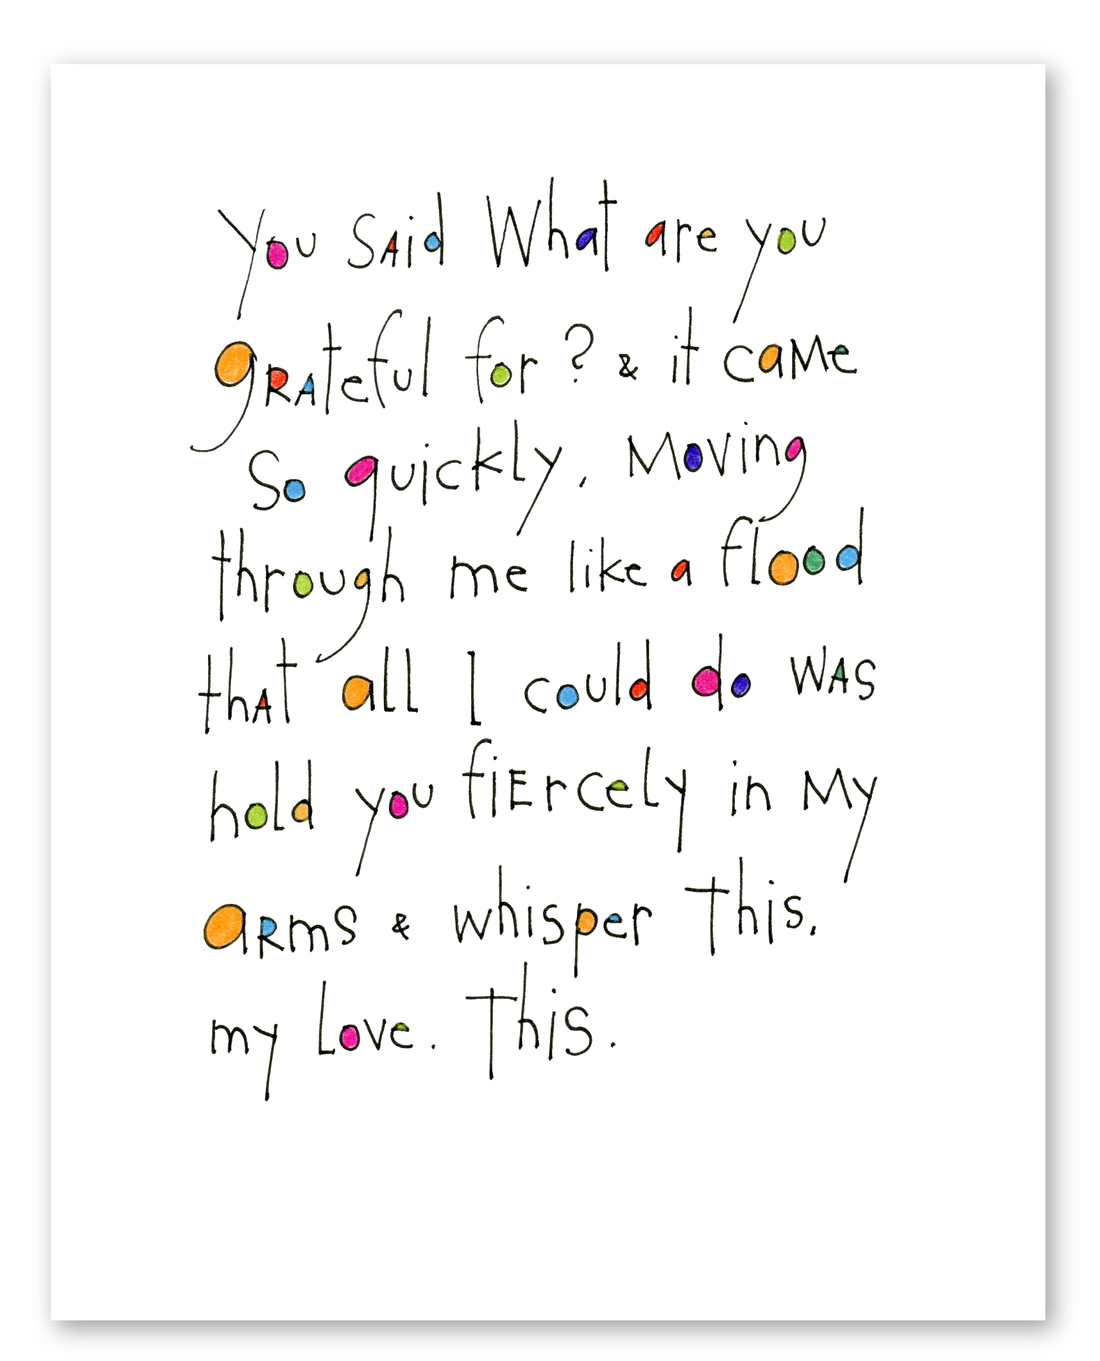 You SAid What are you
gRAteful for? & it caMe
So quickly, Moving
through me like a flood
thAt all I could do WAS
hold you fiErcely in My
aRms & whisper This,
my Love. This.